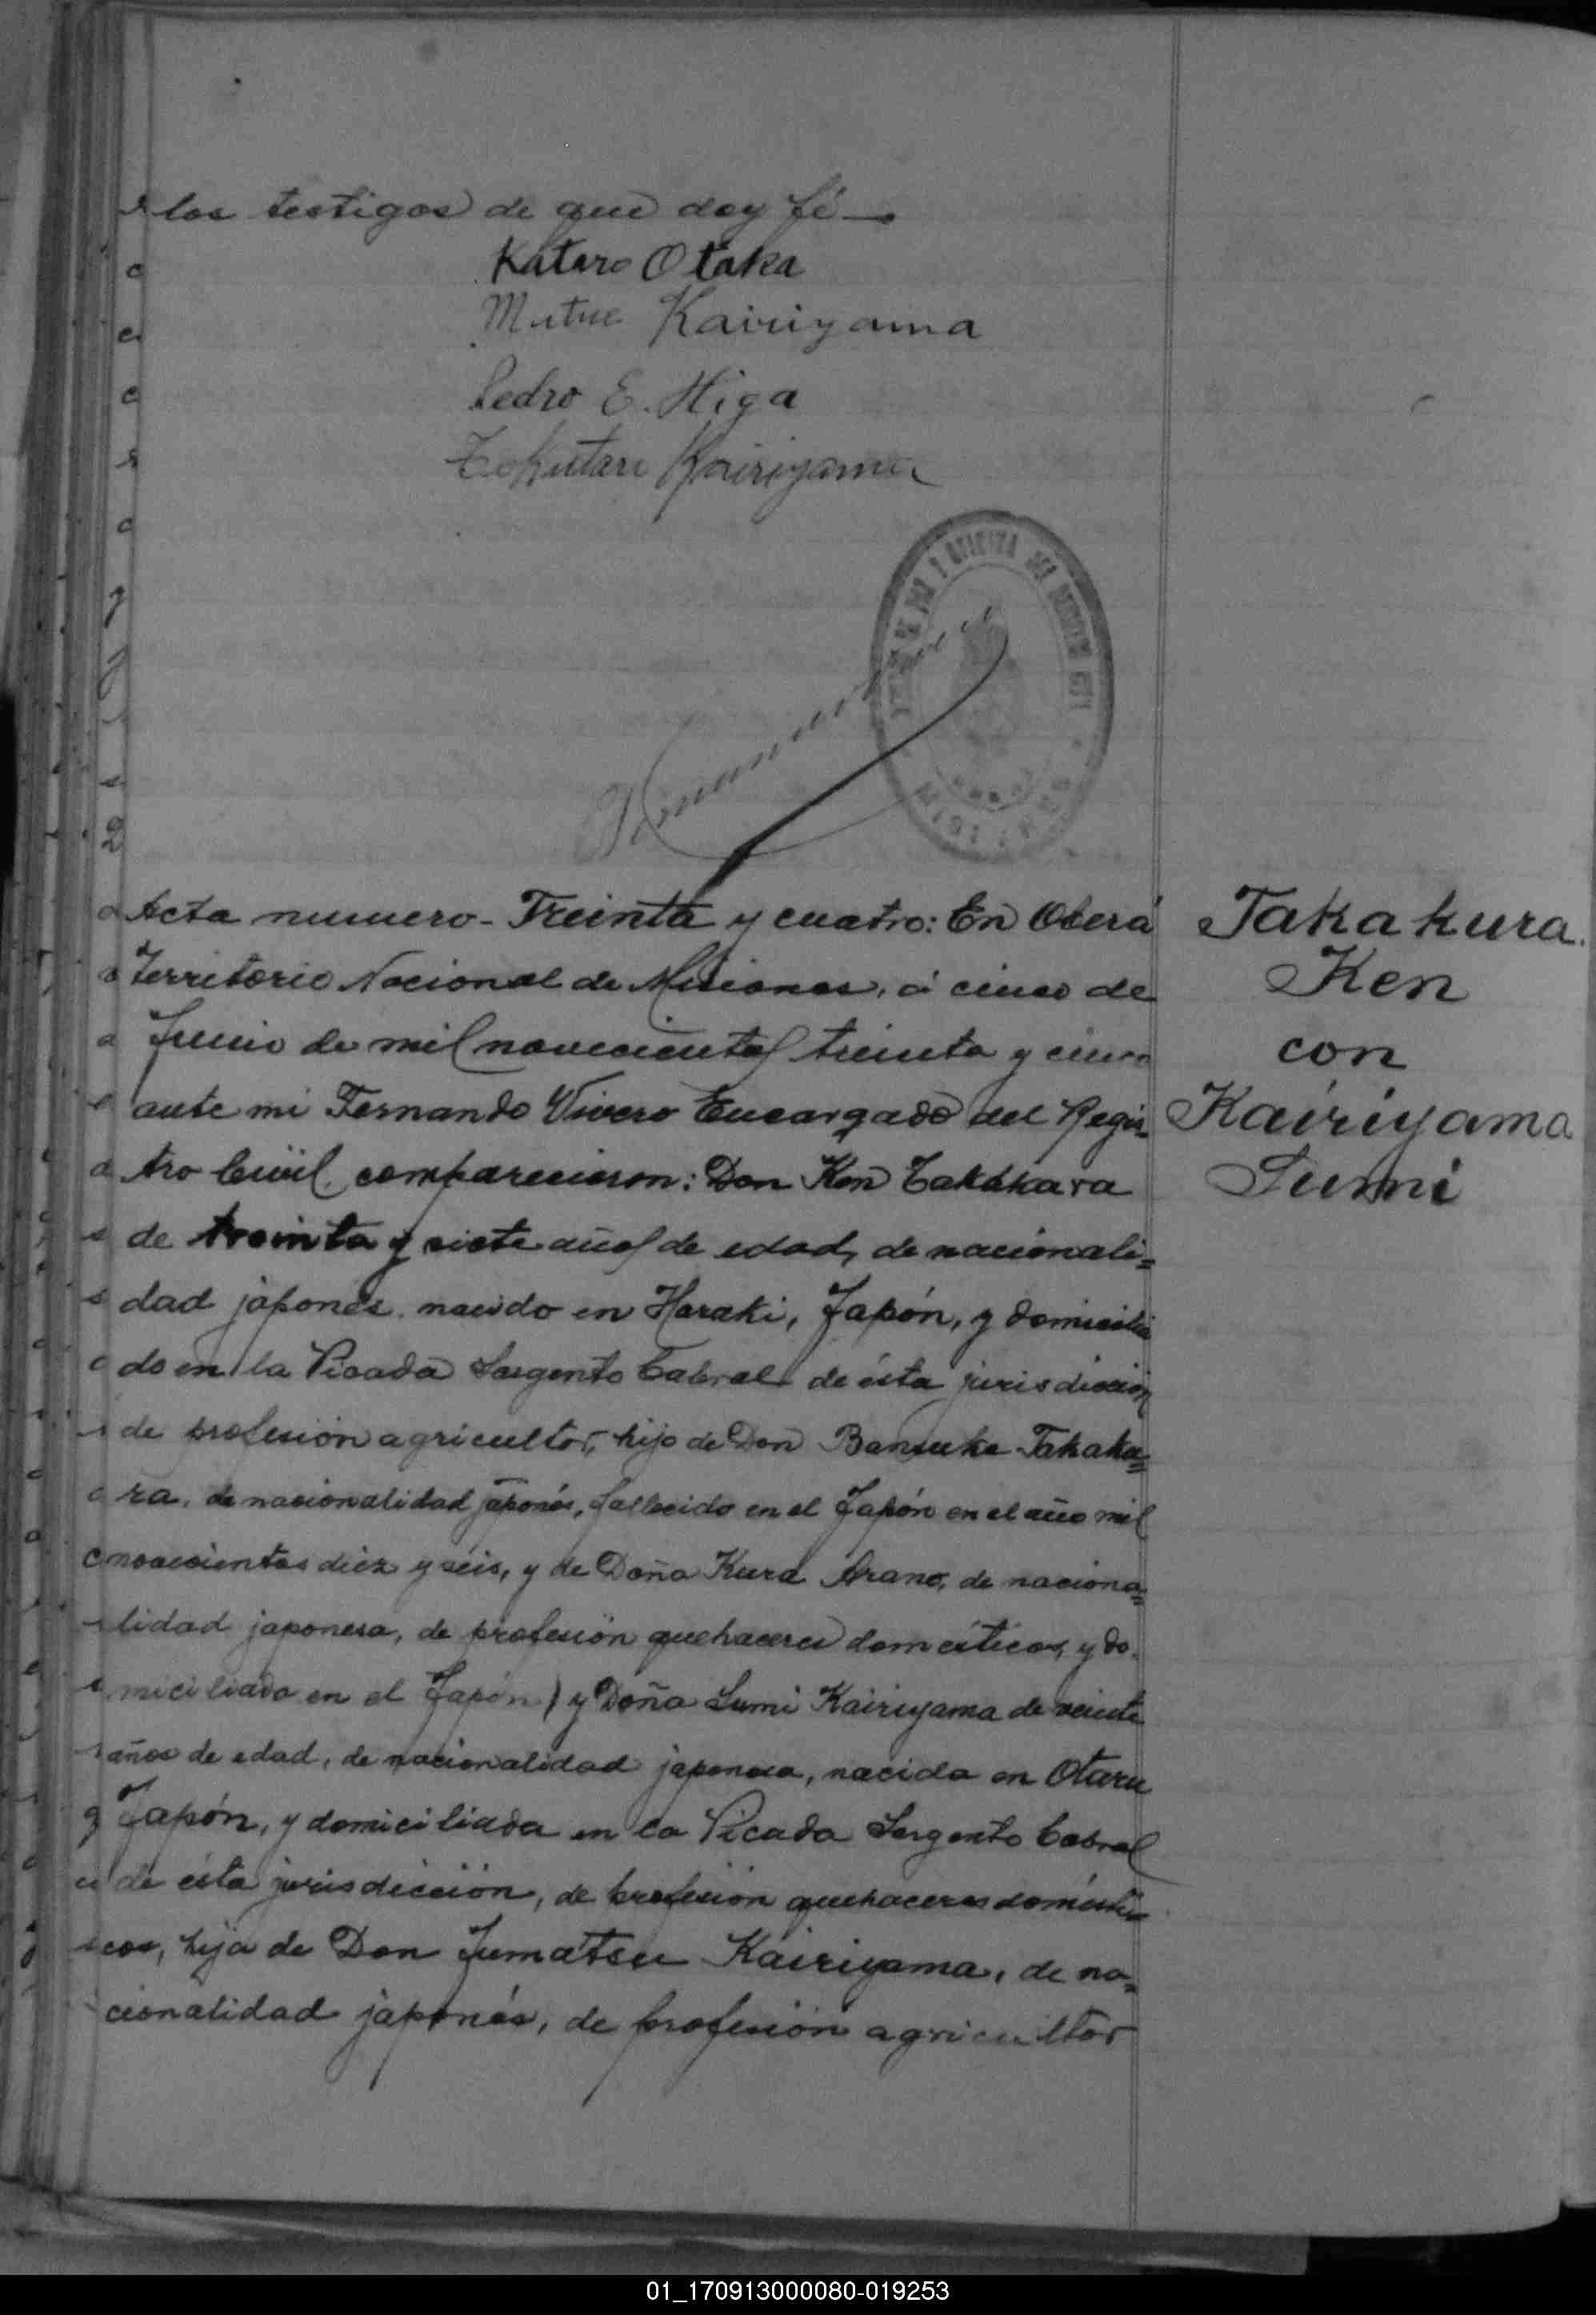 los testigos de que doy fé—
Kataro Otaka
Mutue Kairiyama
Pedro E. Higa
Tokutaro Kairiyama
Acta numero - Treinta y cuatro: En Oberá
Territorio Nacional de Misiones, á cinco de
Junio de mil novecientos treinta y cinco
ante mi Fernando Vivero Encargado del Regis-
tro Civil, comparecieron: Don Ken Takakara
de treinta y siete años de edad, de nacionali=
dad japonés, nacido en Haraki, Japón, y domicilia
do en la Picada Sargento Cabral de ésta jurisdicción
de profesión agricultor, hijo de Don Bansuke Takaka=
ra, de nacionalidad japonés, fallecido en el Japón en el año mil
novecientos diez y séis, y de Doña Kura Arano, de naciona=
lidad japonesa, de profesión quehaceres domésticos, y do-
miciliada en el Japón) y Doña Sumi Kairiyama de veinte
años de edad, de nacionalidad japonesa, nacida en Otaru
Japón, y domiciliada en la Picada Sargento Cabral
de ésta jurisdicción, de profesión quehaceres domésti=
cos, hija de Don Jumatsu Kairiyama, de na=
cionalidad japonés, de profesión agricultor
Takakura
Ken
con
Kairiyama
Sumi
01_170913000080-019253